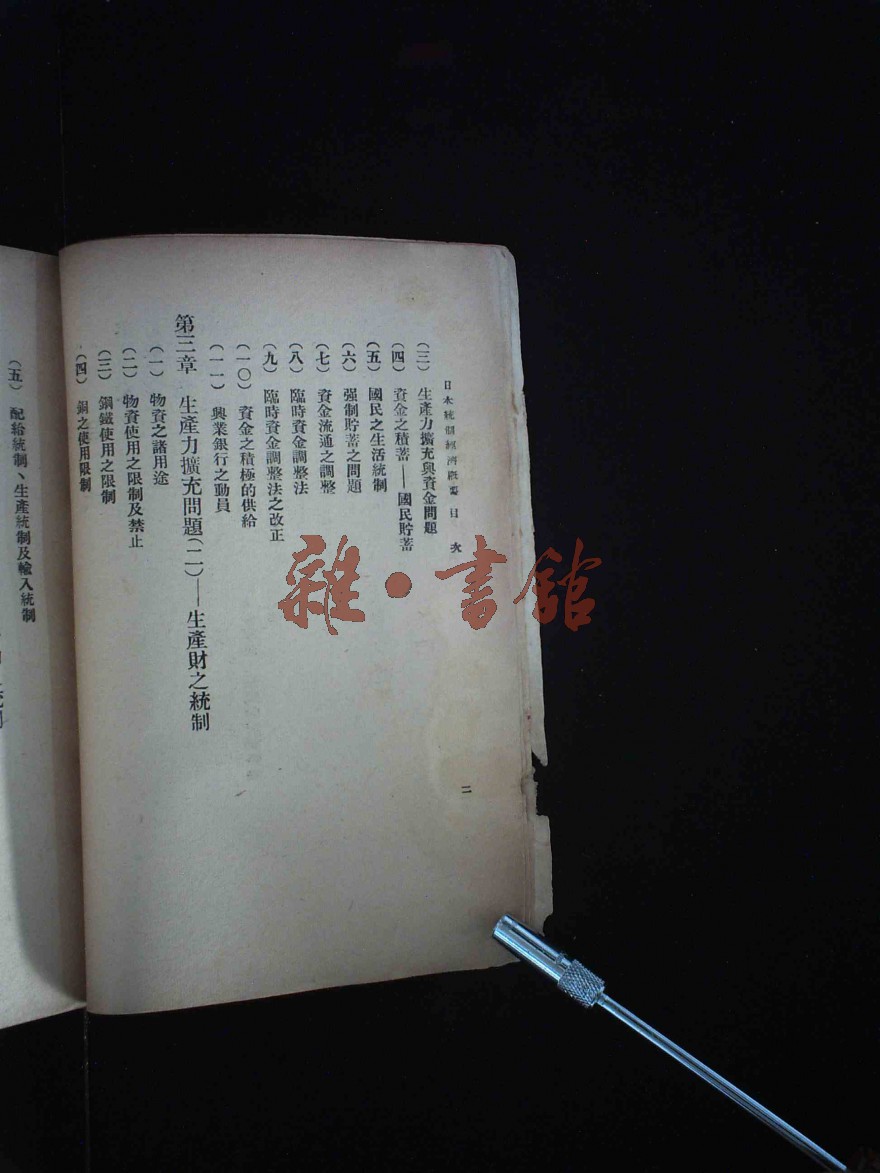 日本統制經濟概要 目 次
(三) 生產力擴充與資金問題
(四) 資金之積蓄——國民貯蓄
(五) 國民之生活統制
(六) 强制貯蓄之問題
(七) 資金流通之調整
(八) 臨時資金調整法
(九) 臨時資金調整法之改正
(一〇) 資金之積極的供給
(一一) 興業銀行之動員
第三章 生產力擴充問題(二)——生產財之統制
(一) 物資之諸用途
(二) 物資使用之限制及禁止
(三) 鋼鐵使用之限制
(四) 銅之使用限制
二
(五) 配給統制、生產統制及輸入統制
雜·書館